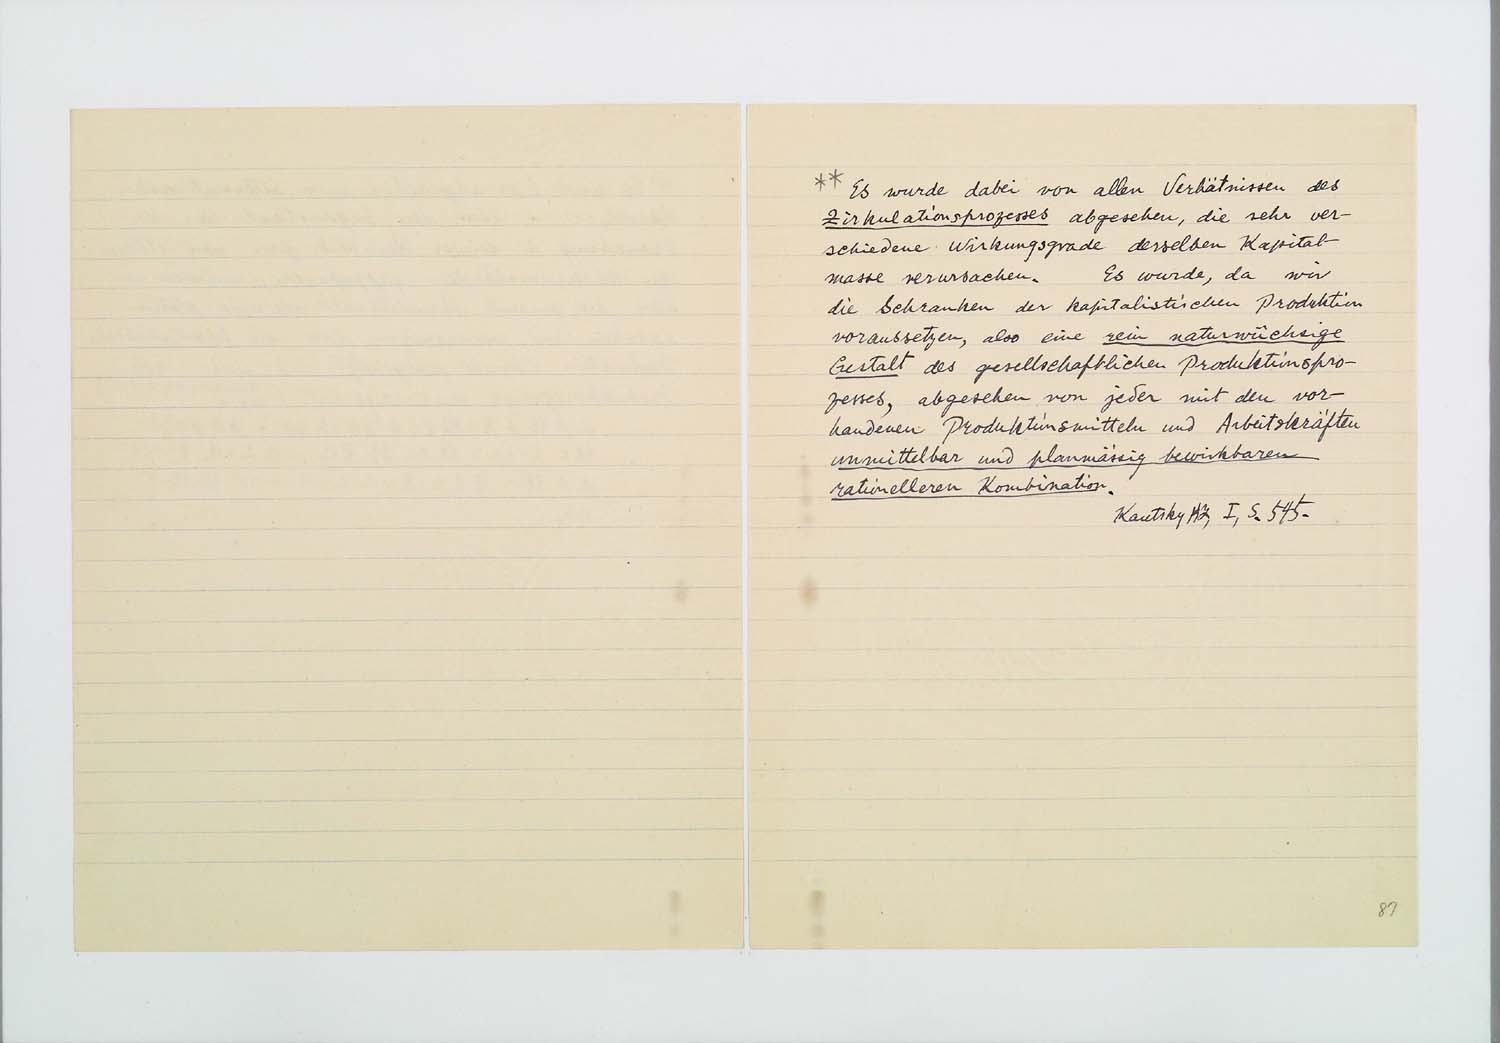 ** Es wurde dabei von allen Verhätnissen des
Zirkulationsprozesses abgesehen, die sehr ver-
schiedene Wirkungsgrade derselben Kapital-
masse verursachen. Es wurde, da wir
die Schranken der kapitalistischen Produktion
voraussetzen, also eine rein naturwüchsige
Gestalt des gesellschaftlichen Produktionspro-
zesses, abgesehen von jeder mit den vor-
handenen Produktionsmitteln und Arbeitskräften
unmittelbar und planmässig bewirkbaren
rationelleren Kombination.
Kautsky I, S. 545.
87